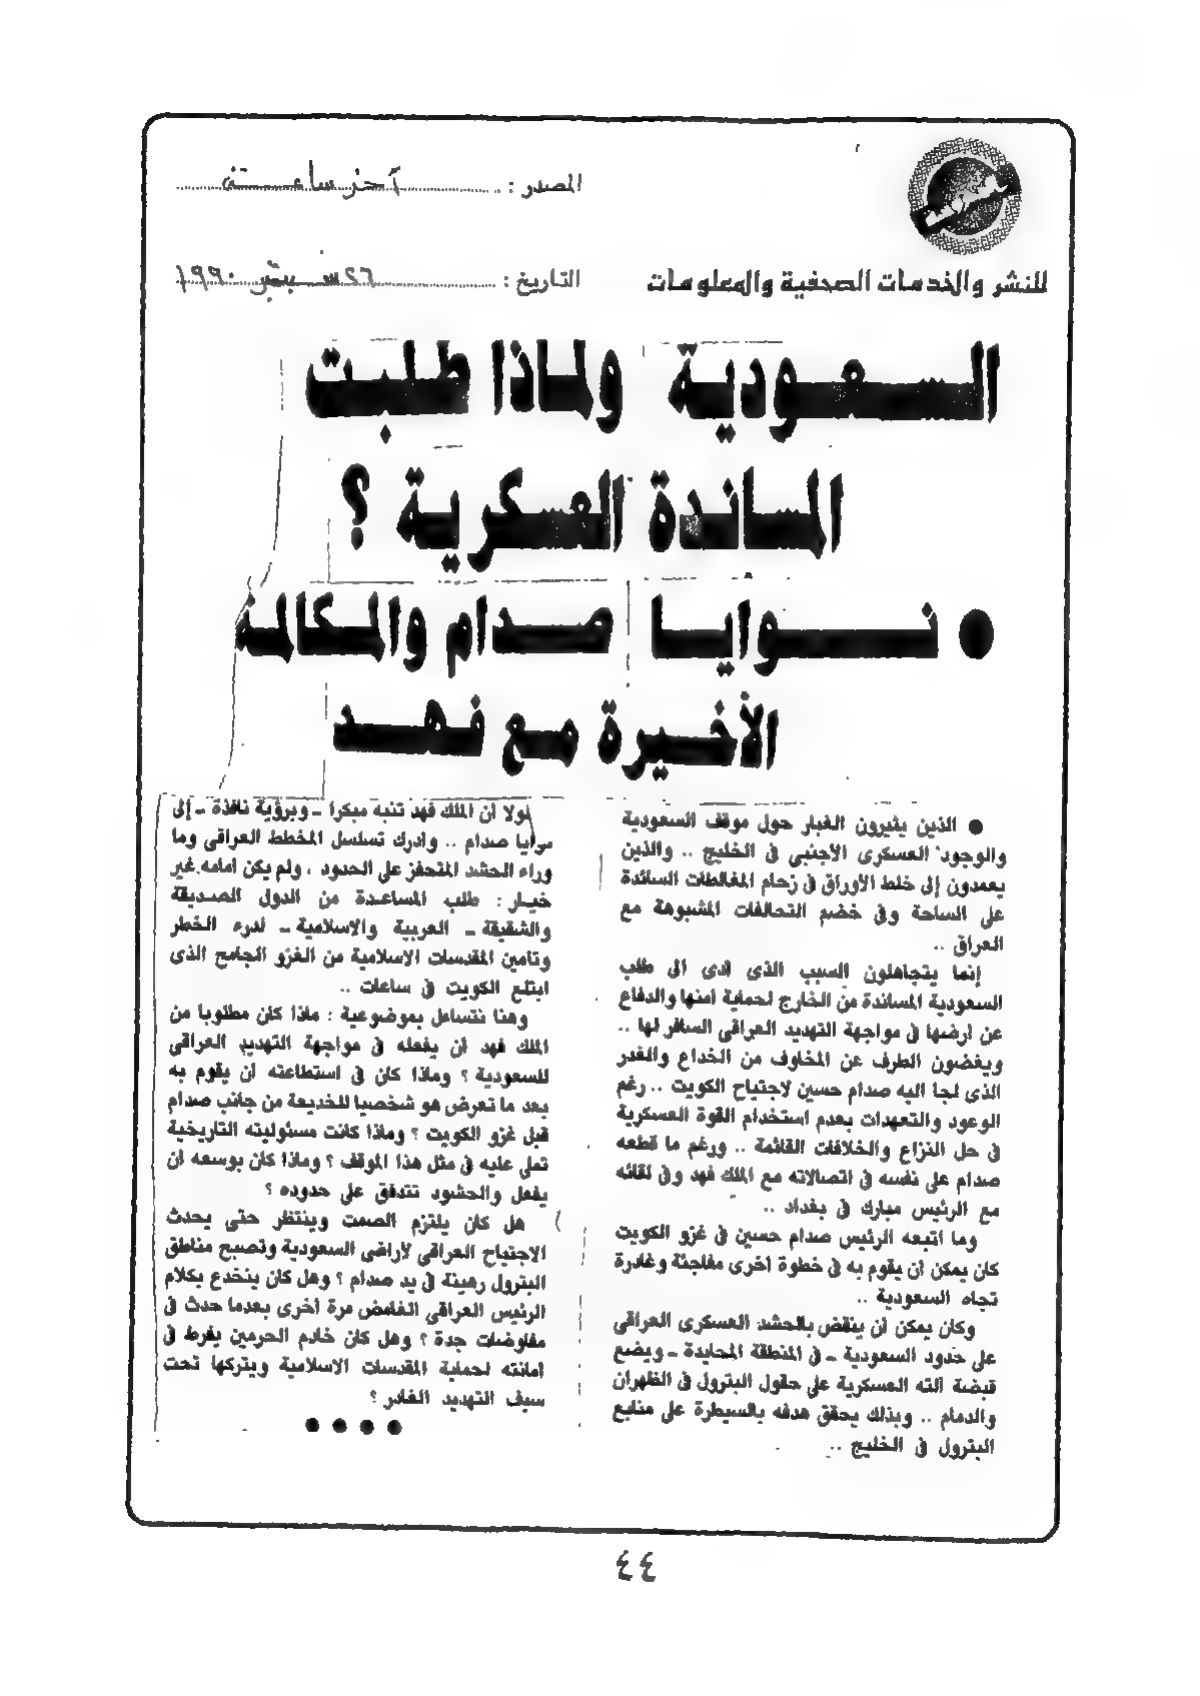 المصدر : آخر ساعة
للنشر والخدمات الصحفية والمعلومات
التاريخ : ٢٦ سبتمبر ١٩٩٠
السعودية ولماذا طلبت
المساندة العسكرية ؟
● نوايا صدام والمكالمة
الأخيرة مع فهد
● الذين يثيرون الغبار حول موقف السعودية
والوجود العسكرى الأجنبى فى الخليج .. والذين
يعمدون إلى خلط الأوراق فى زحام المغالطات السائدة
على الساحة وفى خضم التحالفات المشبوهة مع
العراق ..
إنما يتجاهلون السبب الذى أدى الى طلب
السعودية المساندة من الخارج لحماية أمنها والدفاع
عن أرضها فى مواجهة التهديد العراقى السافر لها ..
ويغضون الطرف عن المخاوف من الخداع والغدر
الذى لجأ اليه صدام حسين لاجتياح الكويت .. رغم
الوعود والتعهدات بعدم استخدام القوة العسكرية
فى حل النزاع والخلافات القائمة .. ورغم ما قطعه
صدام على نفسه فى اتصالاته مع الملك فهد وفى لقائه
مع الرئيس مبارك فى بغداد ..
وما اتبعه الرئيس صدام حسين فى غزو الكويت
كان يمكن أن يقوم به فى خطوة أخرى مفاجئة وغادرة
تجاه السعودية ..
وكان يمكن أن ينقض بالحشد العسكرى العراقى
على حدود السعودية ـ فى المنطقة المحايدة ـ ويضع
قبضة آلته العسكرية على حقول البترول فى الظهران
والدمام .. وبذلك يحقق هدفه بالسيطرة على منابع
البترول فى الخليج ..
لولا أن الملك فهد تنبه مبكرا ـ وبرؤية نافذة ـ إلى
نوايا صدام .. وأدرك تسلسل المخطط العراقى وما
وراء الحشد المتحفز على الحدود ، ولم يكن أمامه غير
خيار : طلب المساعدة من الدول الصديقة
والشقيقة ـ العربية والاسلامية ـ لدرء الخطر
وتأمين المقدسات الاسلامية من الغزو الجامح الذى
ابتلع الكويت فى ساعات ..
وهنا نتساءل بموضوعية : ماذا كان مطلوبا من
الملك فهد أن يفعله فى مواجهة التهديد العراقى
للسعودية ؟ وماذا كان فى استطاعته أن يقوم به
بعد ما تعرض هو شخصيا للخديعة من جانب صدام
قبل غزو الكويت ؟ وماذا كانت مسئوليته التاريخية
تملى عليه فى مثل هذا الموقف ؟ وماذا كان بوسعه أن
يفعل والحشود تتدفق على حدوده ؟
هل كان يلتزم الصمت وينتظر حتى يحدث
الاجتياح العراقى لأراضى السعودية وتصبح مناطق
البترول رهينة فى يد صدام ؟ وهل كان ينخدع بكلام
الرئيس العراقى الغامض مرة أخرى بعدما حدث فى
مفاوضات جدة ؟ وهل كان خادم الحرمين يفرط فى
أمانته لحماية المقدسات الاسلامية ويتركها تحت
سيف التهديد الغادر ؟
● ● ● ●
٤٤